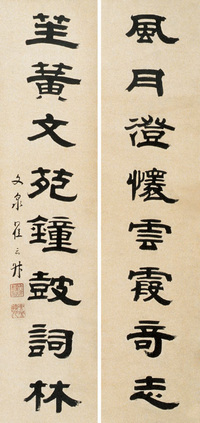 風月澄懷雲霞奇志
笙黃文苑鐘鼓詞林
文泉翟云升